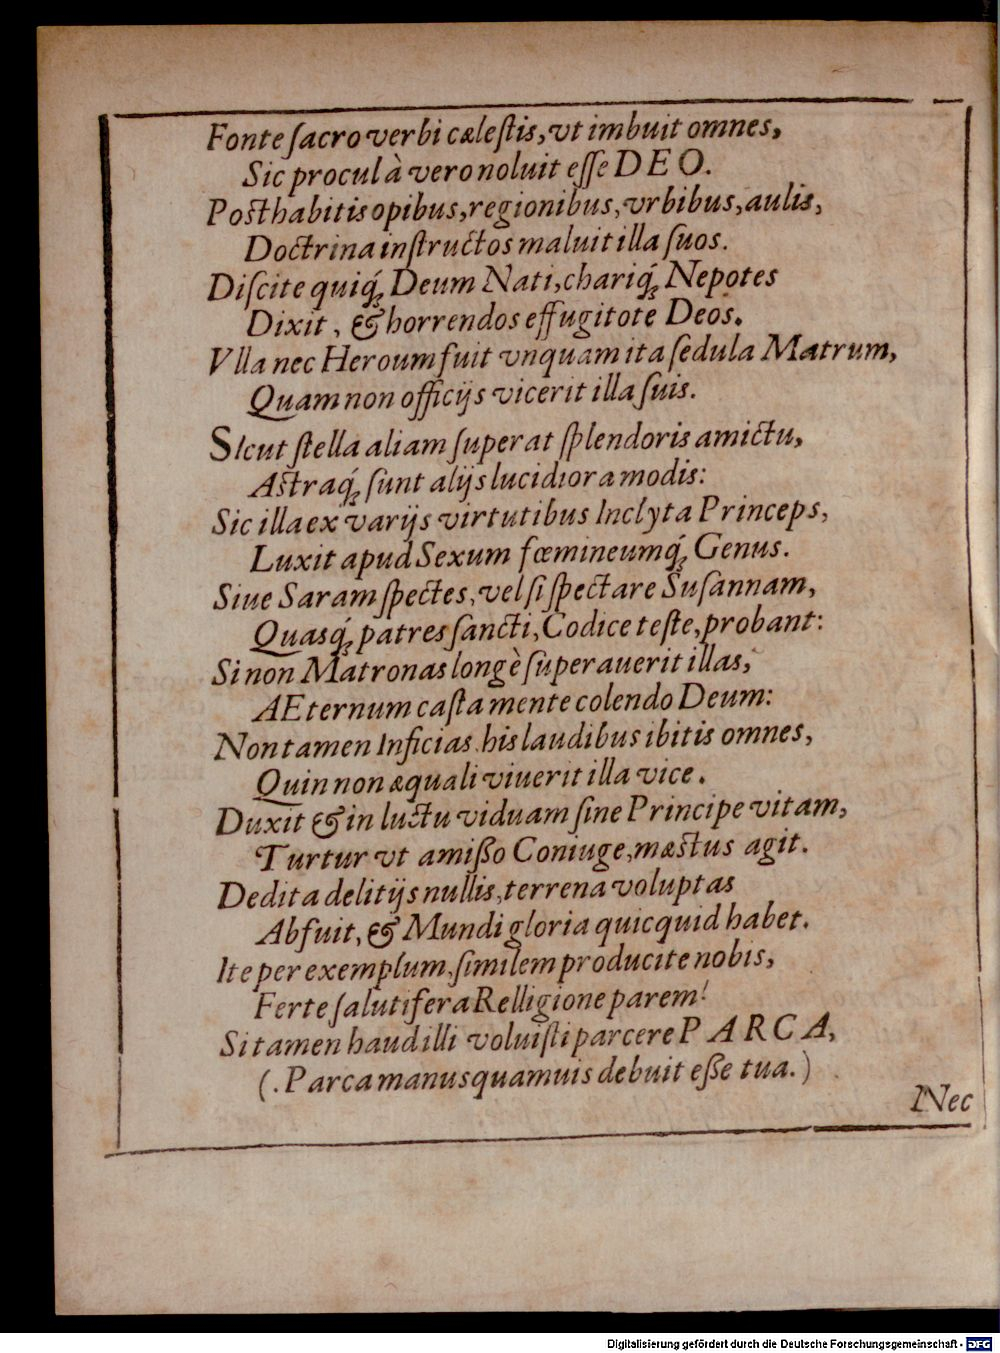 Fonte ſacro verbi cæleſtis, vt imbuit omnes,
Sic procul à vero noluit eſſe DEO.
Posthabitis opibus, regionibus, vrbibus, aulis,
Doctrina inſtructos maluit illa ſuos.
Diſcite quiq́ꝫ Deum Nati, chariq́ꝫ Nepotes
Dixit, & horrendos effugitote Deos.
Vlla nec Heroum fuit vnquam ita ſedula Matrum,
Quam non officijs vicerit illa ſuis.
SIcut ſtella aliam ſuperat ſplendoris amictu,
Astraq́ꝫ ſunt alijs lucidiora modis:
Sic illa ex varijs virtutibus Inclyta Princeps,
Luxit apud Sexum fœmineumq́ꝫ Genus.
Siue Saram ſpectes, vel ſi ſpectare Suſannam,
Quasq́ꝫ patres ſancti, Codice teſte, probant:
Si non Matronas longè ſuperauerit illas,
AEternum caſta mente colendo Deum:
Non tamen Inficias his laudibus ibitis omnes,
Quin non æquali viuerit illa vice.
Duxit & in luctu viduam ſine Principe vitam,
Turtur vt amißo Coniuge, mæstus agit.
Dedita delitijs nullis, terrena voluptas
Abfuit, & Mundi gloria quicquid habet.
Ite per exemplum, ſimilem producite nobis,
Ferte ſalutifera Relligione parem!
Si tamen haud illi voluiſti parcere PARCA,
(. Parca manus quamuis debuit eße tua.)
Nec
Digitalisierung gefördert durch die Deutsche Forschungsgemeinschaft - DFG